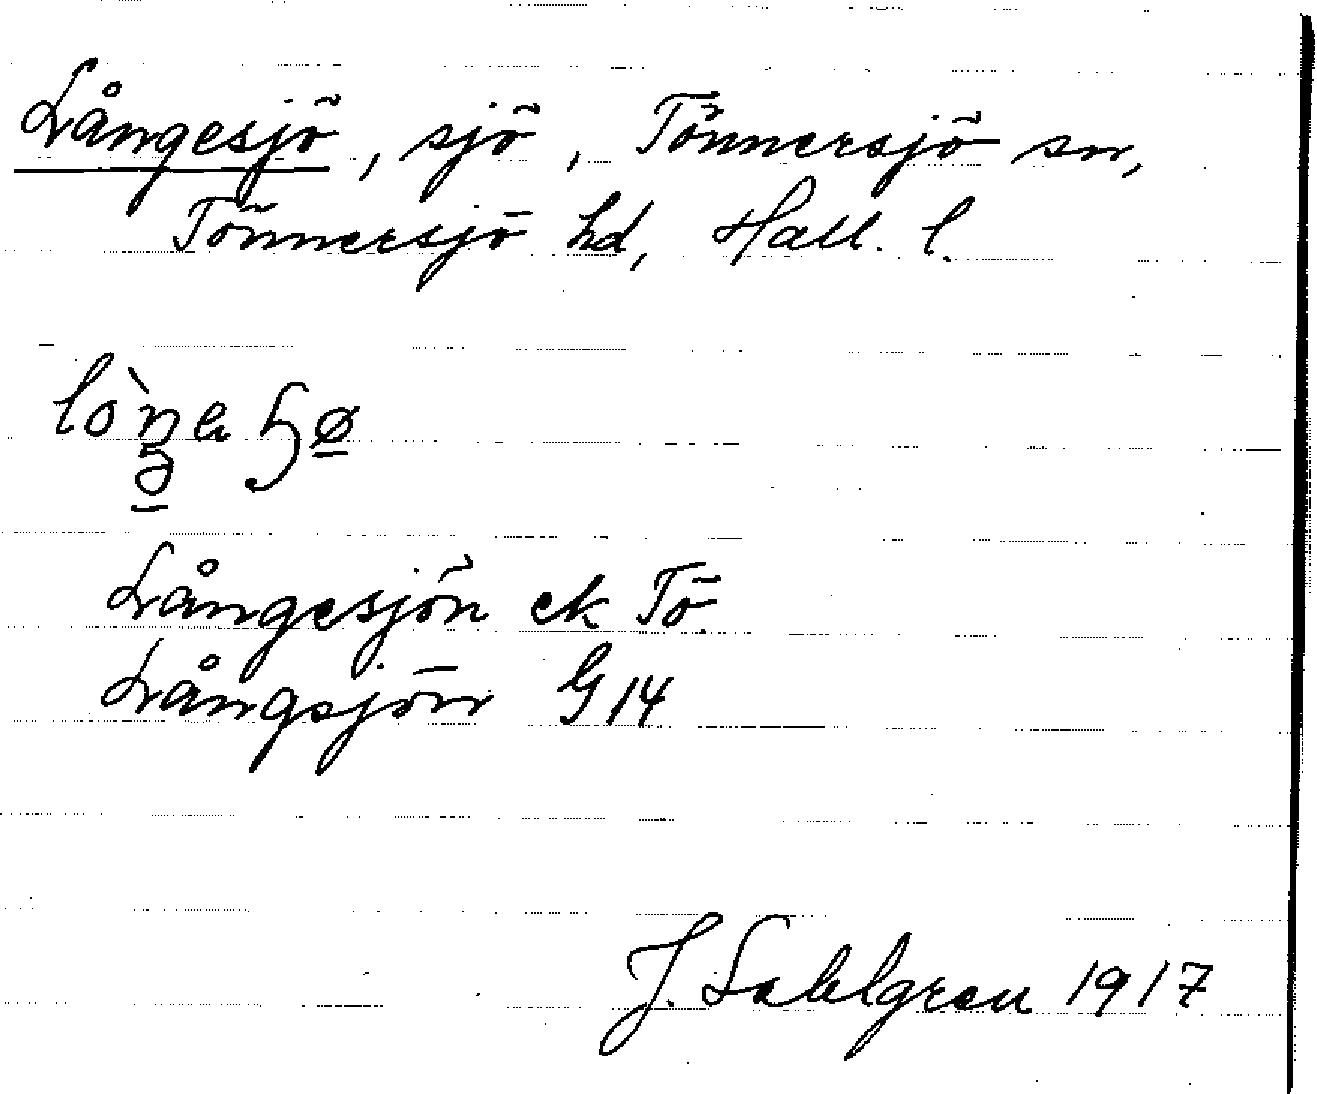 Långesjö, sjö, Tönnersjö sn,
Tönnersjö hd, Hall. l.
Långesjön ek Tö
Långsjön G 14
J. Sahlgren 1917